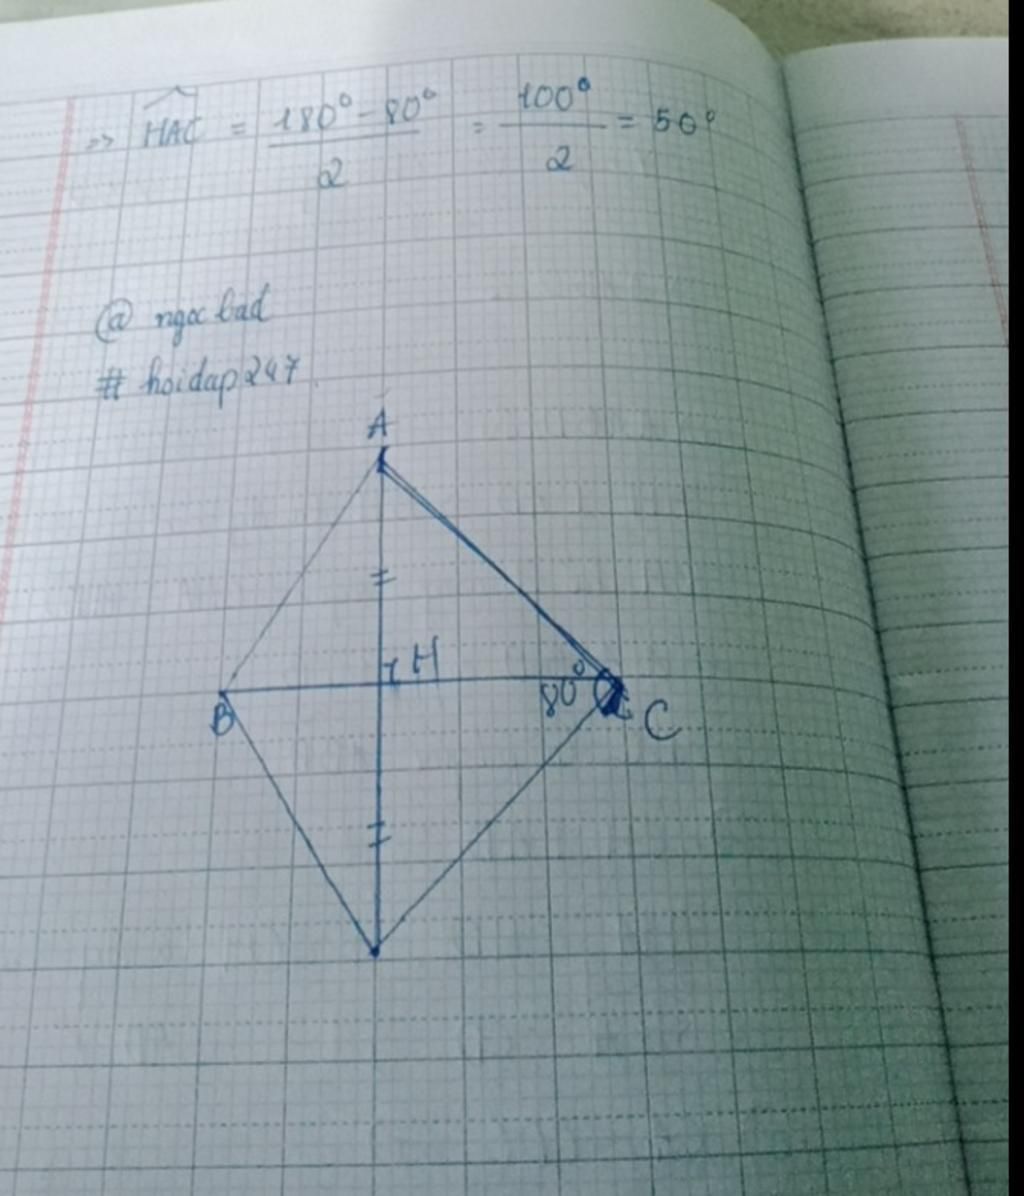 => HAC = 180° - 80° / 2 = 100° / 2 = 50°
@ ngoc bad
# hoidap247
A
H
B
80°
C